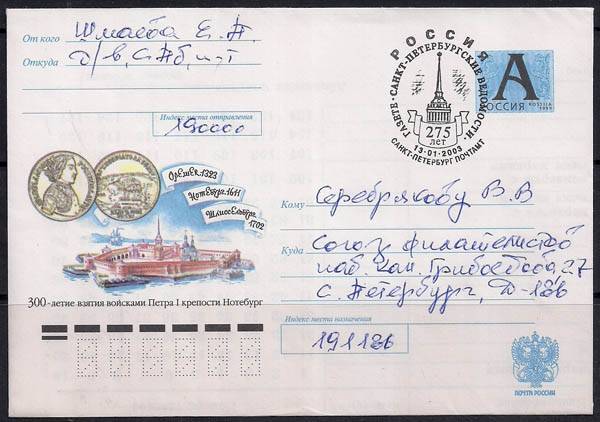 От кого Шмаева Е. П.
Откуда г/в, С.Пб, п-т
Индекс места отправления
190000
РОССИЯ
ГАЗЕТЕ «САНКТ-ПЕТЕРБУРГСКИЕ ВЕДОМОСТИ»
275
ЛЕТ
13-01-2003
САНКТ-ПЕТЕРБУРГ ПОЧТАМТ
А
РОССИЯ
ROSSIJA
Орешек.1323
Нотебург.1611
Шлиссельбург.
1702
300-летие взятия войсками Петра I крепости Нотебург
Кому Серебрякову В. В
Куда Союз филателистов
наб. кан. Грибоедова, 27
С. Петербург, Д-186
Индекс места назначения
191186
ПОЧТА РОССИИ